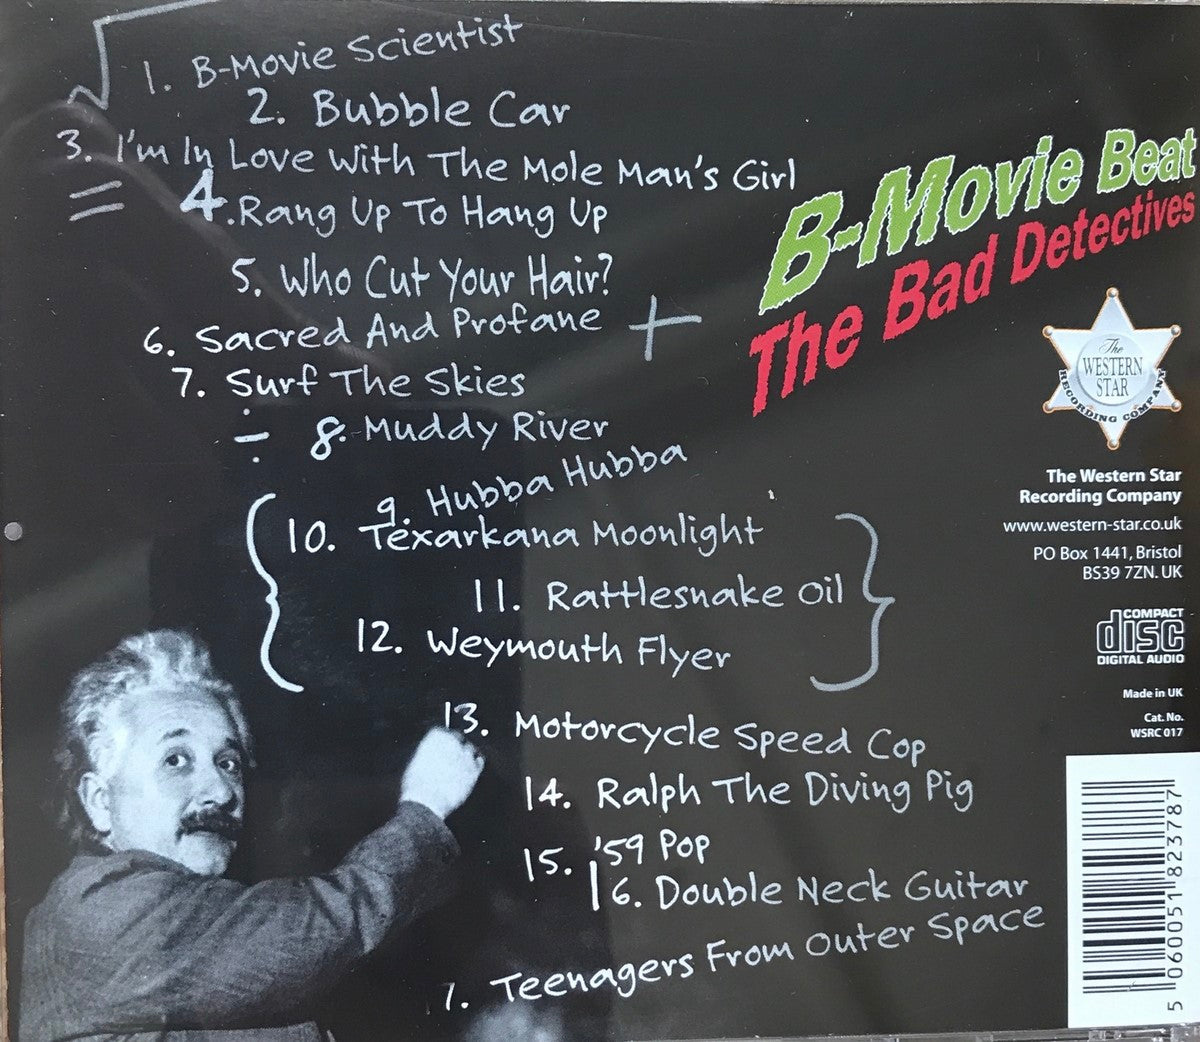 1. B-Movie Scientist
2. Bubble Car
3. I'm In Love With The Mole Man's Girl
4. Rang Up To Hang Up
5. Who Cut Your Hair?
6. Sacred And Profane
7. Surf The Skies
8. Muddy River
9. Hubba Hubba
10. Texarkana Moonlight
11. Rattlesnake Oil
12. Weymouth Flyer
13. Motorcycle Speed Cop
14. Ralph The Diving Pig
15. '59 Pop
16. Double Neck Guitar
7. Teenagers From Outer Space
B-Movie Beat
The Bad Detectives
The
WESTERN
STAR
RECORDING COMPANY
The Western Star
Recording Company
www.western-star.co.uk
PO Box 1441, Bristol
BS39 7ZN. UK
COMPACT
disc
DIGITAL AUDIO
Made in UK
Cat. No.
WSRC 017
5 060051 823787